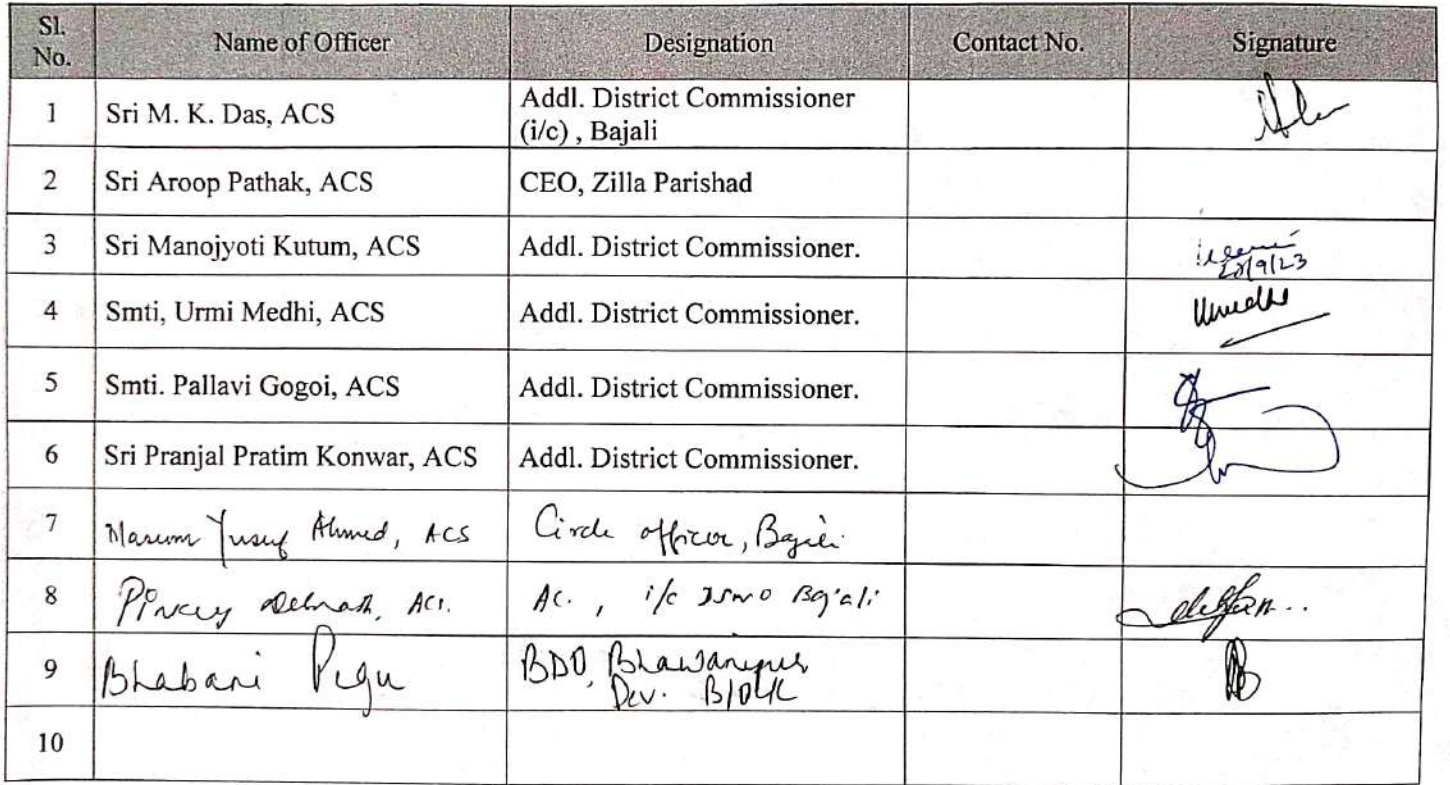 Sl. No. Name of Officer Designation Contact No. Signature
1 Sri M. K. Das, ACS Addl. District Commissioner
(i/c) , Bajali
2 Sri Aroop Pathak, ACS CEO, Zilla Parishad
3 Sri Manojyoti Kutum, ACS Addl. District Commissioner.
4 Smti, Urmi Medhi, ACS Addl. District Commissioner.
5 Smti. Pallavi Gogoi, ACS Addl. District Commissioner.
6 Sri Pranjal Pratim Konwar, ACS Addl. District Commissioner.
7 Masum Yusuf Ahmed, ACS Circle officer, Bajali
8 Debnath, ACS. AC., i/c Bajali
9 Bhabani Pegu BDO, Bhawanipur
Dev. Block
10